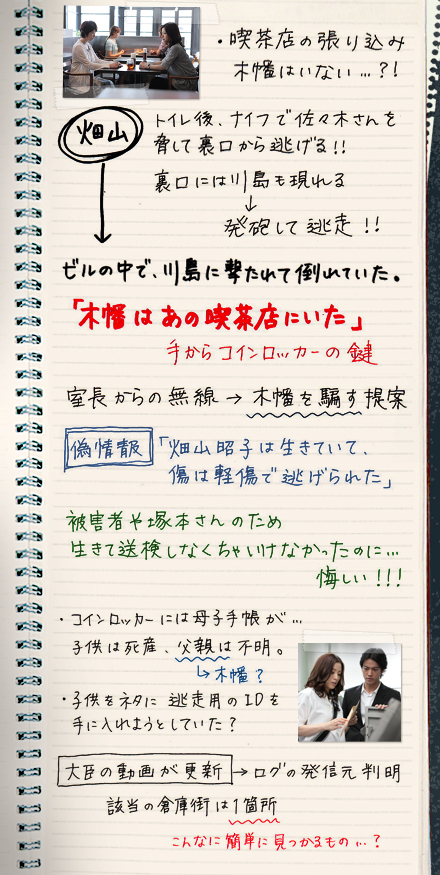 ・喫茶店の張り込み
木幡はいない…?!
畑山
トイレ後、ナイフで佐々木さんを
脅して裏口から逃げる!!
裏口には川島も現れる
↓
発砲して逃走!!
ビルの中で、川島に撃たれて倒れていた。
「木幡はあの喫茶店にいた」
手からコインロッカーの鍵
室長からの無線→木幡を騙す提案
偽情報「畑山昭子は生きていて、
傷は軽傷で逃げられた」
被害者や塚本さんのため
生きて送検しなくちゃいけなかったのに…
悔しい!!!
・コインロッカーには母子手帳が…
子供は死産、父親は不明。
↳木幡?
・子供をネタに逃走用のIDを
手に入れようとしていた?
大臣の動画が更新→ログの発信元判明
該当の倉庫街は1箇所
こんなに簡単に見つかるもの…?